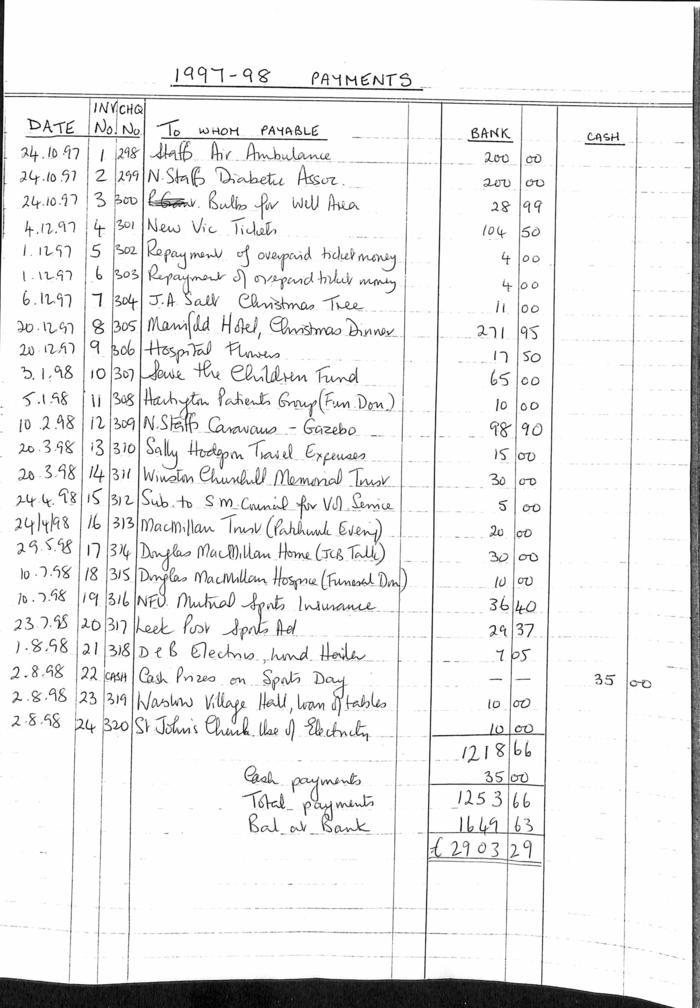 1997-98 PAYMENTS
DATE INV No. CHQ No. To WHOM PAYABLE BANK CASH
24.10.97 1 298 Staffs Air Ambulance 200 00
24.10.97 2 299 N. Staffs Diabetic Assoc. 200 00
24.10.97 3 300 Bulbs for Well Area 28 99
4.12.97 4 301 New Vic Tickets 104 50
1.12.97 5 302 Repayment of overpaid ticket money 4 00
1.12.97 6 303 Repayment of overpaid ticket money 4 00
6.12.97 7 304 J.A Salt Christmas Tree 11 00
20.12.97 8 305 Manifold Hotel, Christmas Dinner 271 95
20.12.97 9 306 Hospital Flowers 17 50
3.1.98 10 307 Save the Children Fund 65 00
5.1.98 11 308 Hartington Patients Group (Fun. Don.) 10 00
10.2.98 12 309 N. Staffs Caravans - Gazebo 98 90
20.3.98 13 310 Sally Hodgson Travel Expenses 15 00
20.3.98 14 311 Winston Churchill Memorial Trust 30 00
24.4.98 15 312 Sub. to S M Council for Vol Service 5 00
24/4/98 16 313 MacMillan Trust (Patchwork Eveng) 20 00
29.5.98 17 314 Douglas MacMillan Home (JCB Talk) 30 00
10.7.98 18 315 Douglas MacMillan Hospice (Funeral Don) 10 00
10.7.98 19 316 NFU Mutual Sports Insurance 36 40
23.7.98 20 317 Leek Post Sports Ad 29 37
1.8.98 21 318 D & B Electrics, Loud Hailer 7 05
2.8.98 22 CASH Cash Prizes on Sports Day — — 35 00
2.8.98 23 319 Warslow Village Hall, loan of tables 10 00
2.8.98 24 320 St John's Church. Use of Electricity 10 00
1218 66
Cash payments 35 00
Total payments 1253 66
Bal at Bank 1649 63
£2903 29